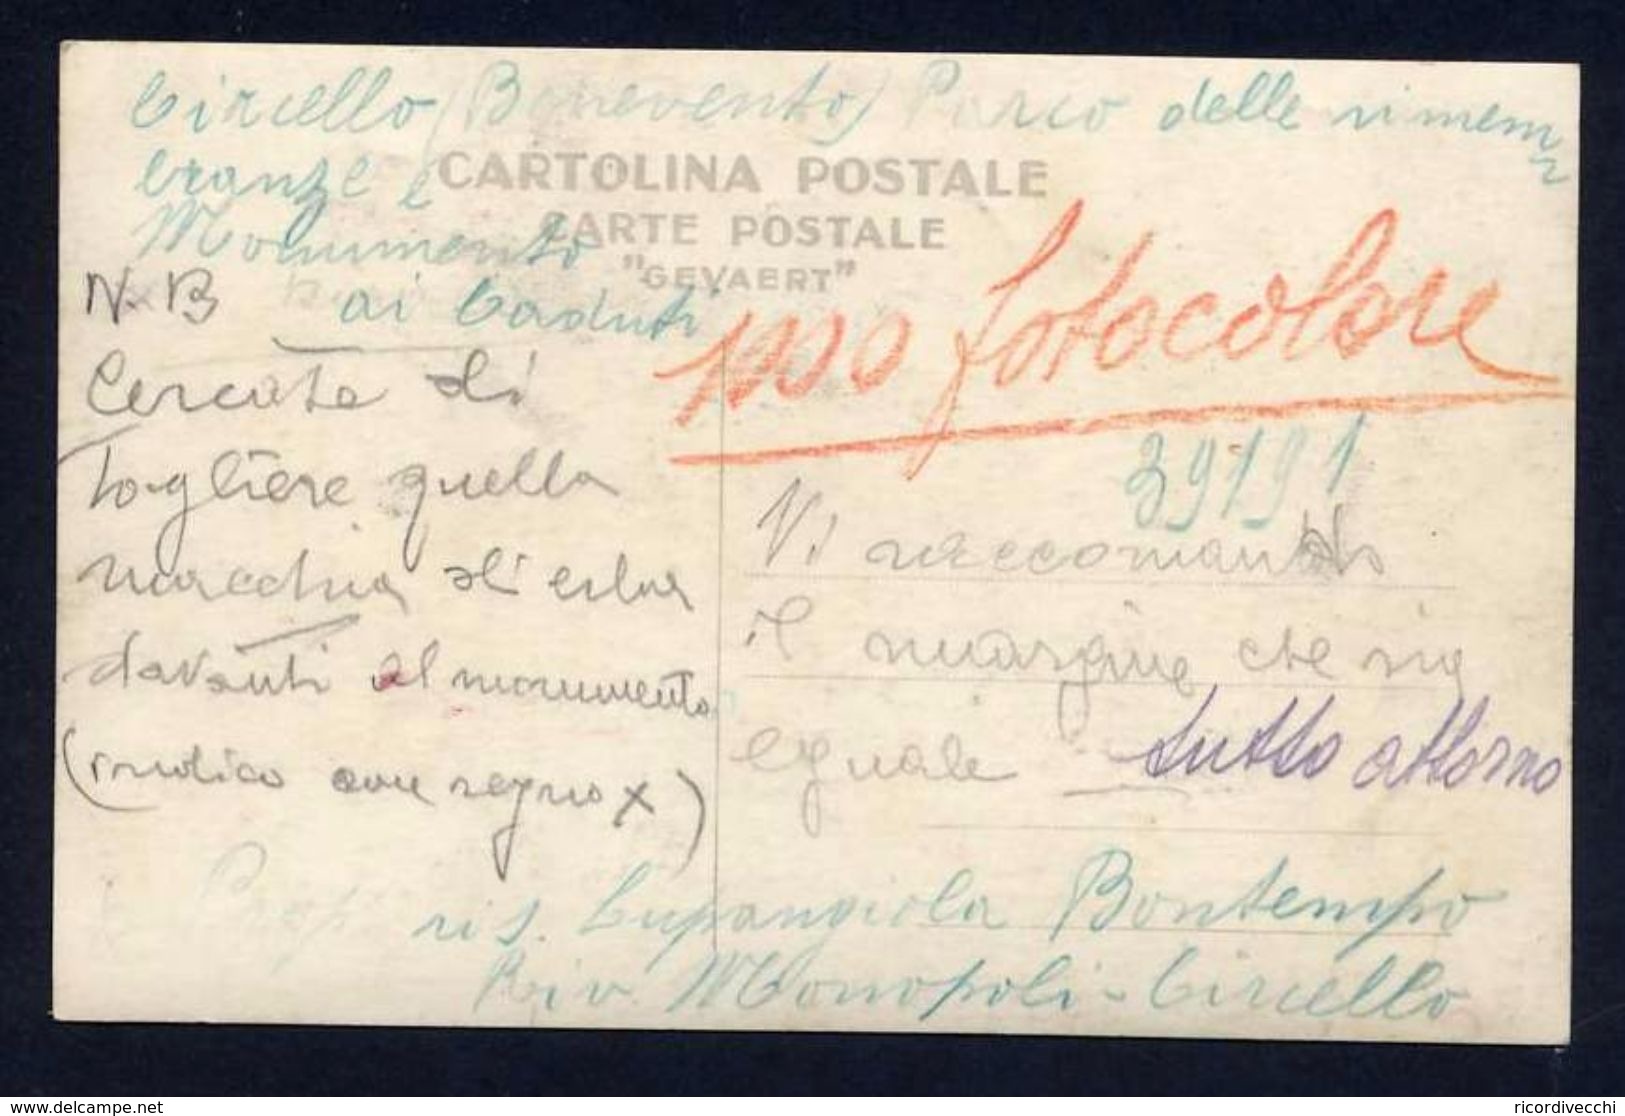 Circello (Benevento) Parco delle rimem=
branze e
CARTOLINA POSTALE
Monumento
CARTE POSTALE
"GEVAERT"
ai Caduti
N.B
1000 fotocolore
Cercate di
togliere quella
macchia di erba
davanti al monumento
(indico con segno x)
39191
Vi raccomando
il margine che sia
eguale tutto attorno
Prop. ris. Lupangiola Bontempo
Riv. Monopoli - Circello
© for delcampe.net
ricordivecchi